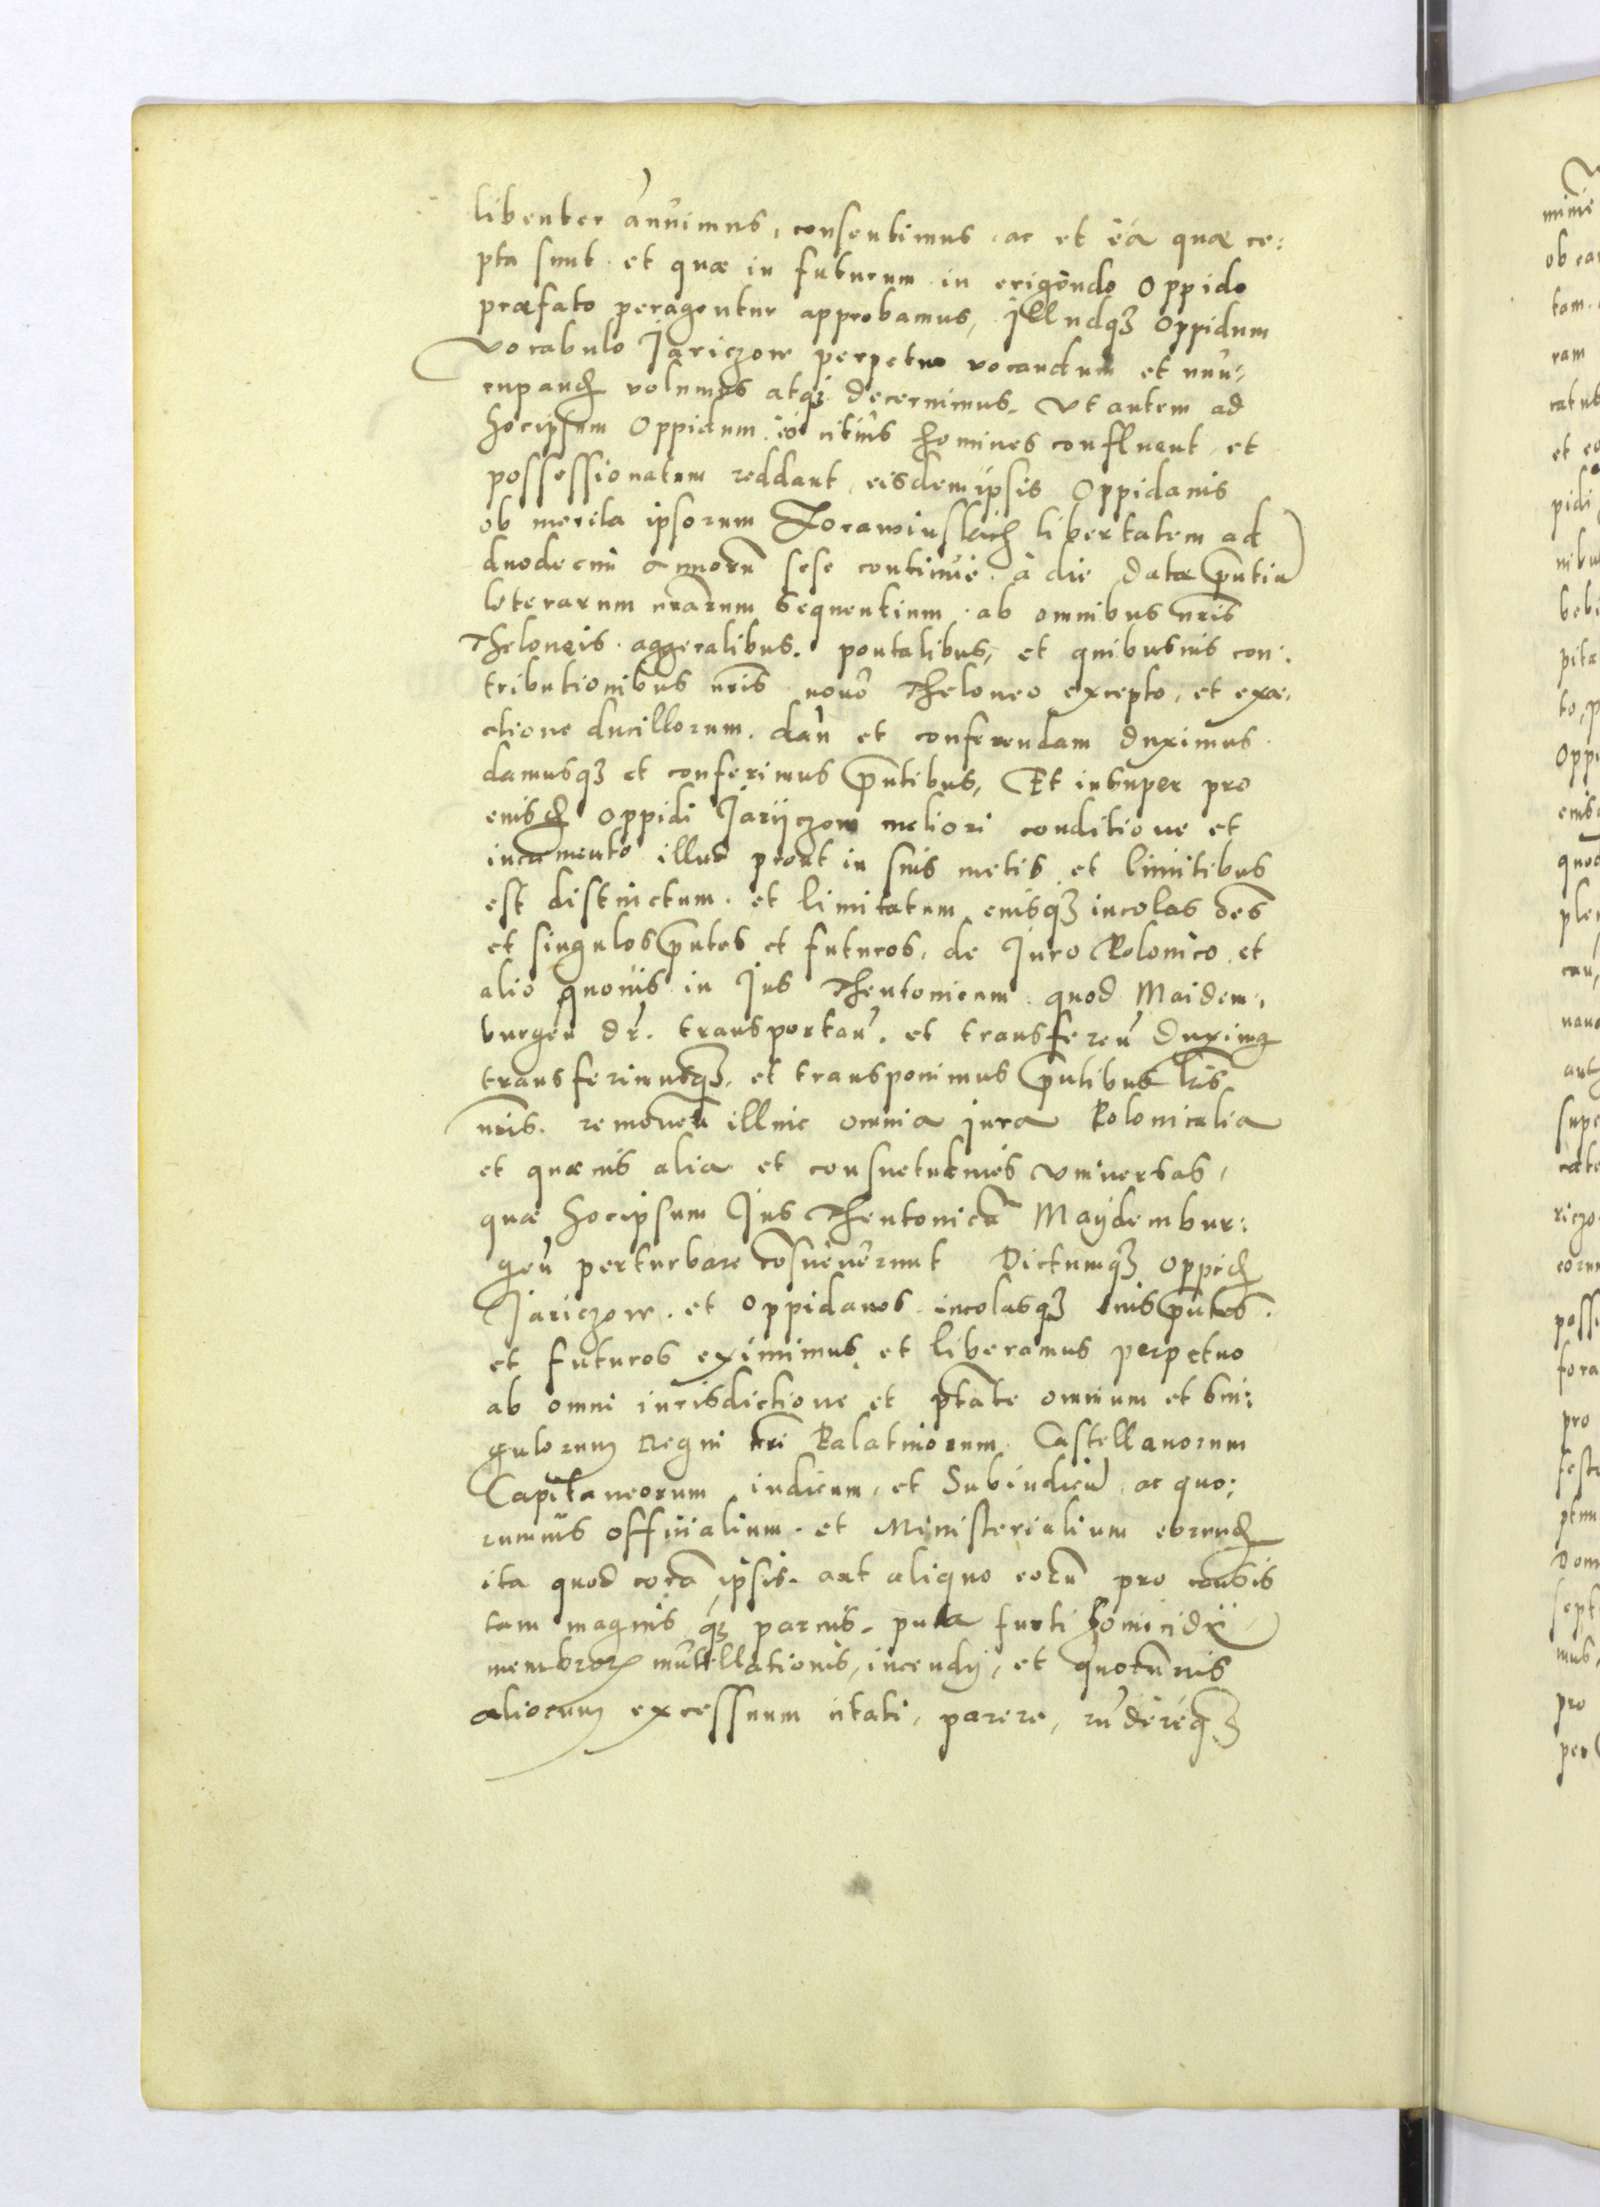 libenter annuimus, consentimus, ac et ea quae ce:
pta sunt, et quae in futurum in erigendo Oppido
praefato peragentur approbamus, Illudq3 Oppidum
vocabulo Jariczow perpetuo vocandum et nun:
cupand volumus atq3 decernimus. Ut autem ad
hocipsum Oppidum eo citius homines confluant, et
possessionatum reddant, eisdemipsis Oppidanis
ob merita ipsorum Zorawinslich libertatem ad
duodecim annorū sese continue à die datae pn̄tiū
literarum nrārum sequentium, ab omnibus nrīs
Theloneis, aggeralibus, pontalibus, et quibusuis con:
tributionibus nrīs, nouo Theloneo excepto, et exa:
ctione ducillorum, dan̄ et conferendam duximus,
damusq3 et conferimus pn̄tibus, Et insuper pro
eiusd Oppidi Jarijczow meliori conditione et
incremento illud prout in suis metis et limitibus
est distinctum, et limitatum, eiusq3 incolas oēs
et singulos pn̄tes et futuros, de Jure Polonico, et
alio quouis in Jus Theutonicum, quod Maidem:
burgen̄ dr̄. transportan̄. et transferen̄ duxim9
transferimusq3, et transponimus pn̄tibus lrīs
nrīs. remouen̄ illinc omnia jura Polonicalia
et quaeuis alia et consuetudines vniuersas,
quae hocipsum Jus Theutonicū Maijdembur:
gen̄ perturbare cōsueuerunt Dictumq3 Oppid
Jariczow. et Oppidanos, incolasq3 eius pn̄tes.
et futuros eximimus, et liberamus perpetuo
ab omni iurisdictione et ptāte omnium et sin:
gulorum Regni nrī Palatinorum, Castellanorum
Capitaneorum, iudicum, et Subiudicū, ac quo:
rumuis officialium, et Ministerialium eorund
ita quod corā ipsis, aut aliquo eorū pro causis
tam magnis q3 paruis, puta furti homicidii
membror mutillationis, incendij, et quorumuis
aliorum excessuum citati, parere, rn̄dereq3